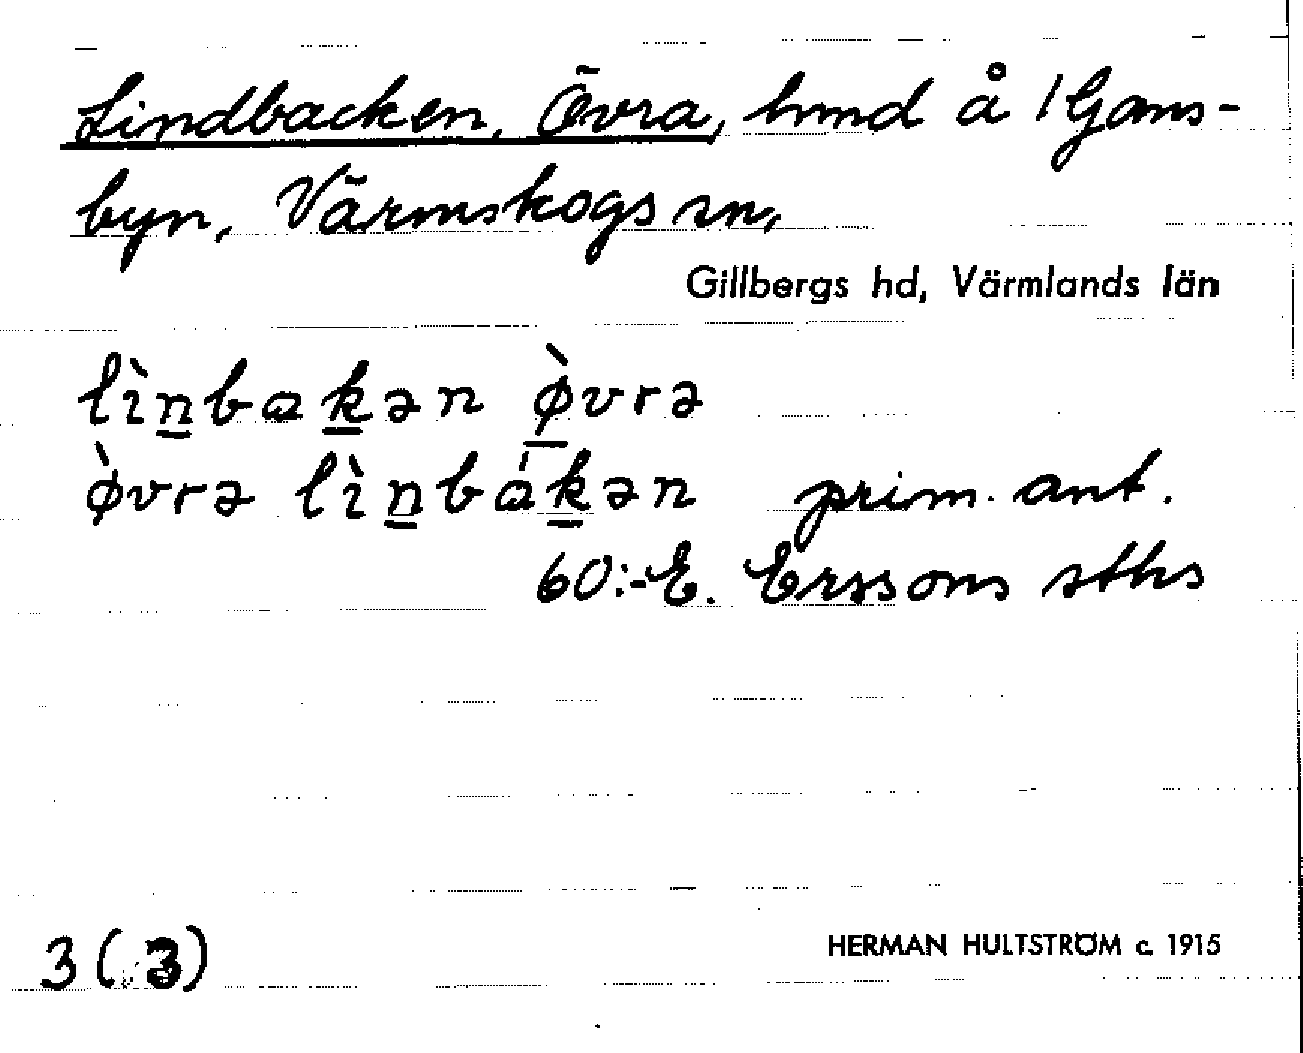 Lindbacken, Övra, hmd å 1 Gans-
byn, Värmskogs sn,
Gillbergs hd, Värmlands län
lìn̲bak̲ən ø̲̀vrə
ø̀vrə lìn̲bák̲ən prim. ant.
60:- E. Erssons sths
3 (3)
HERMAN HULTSTRÖM c. 1915